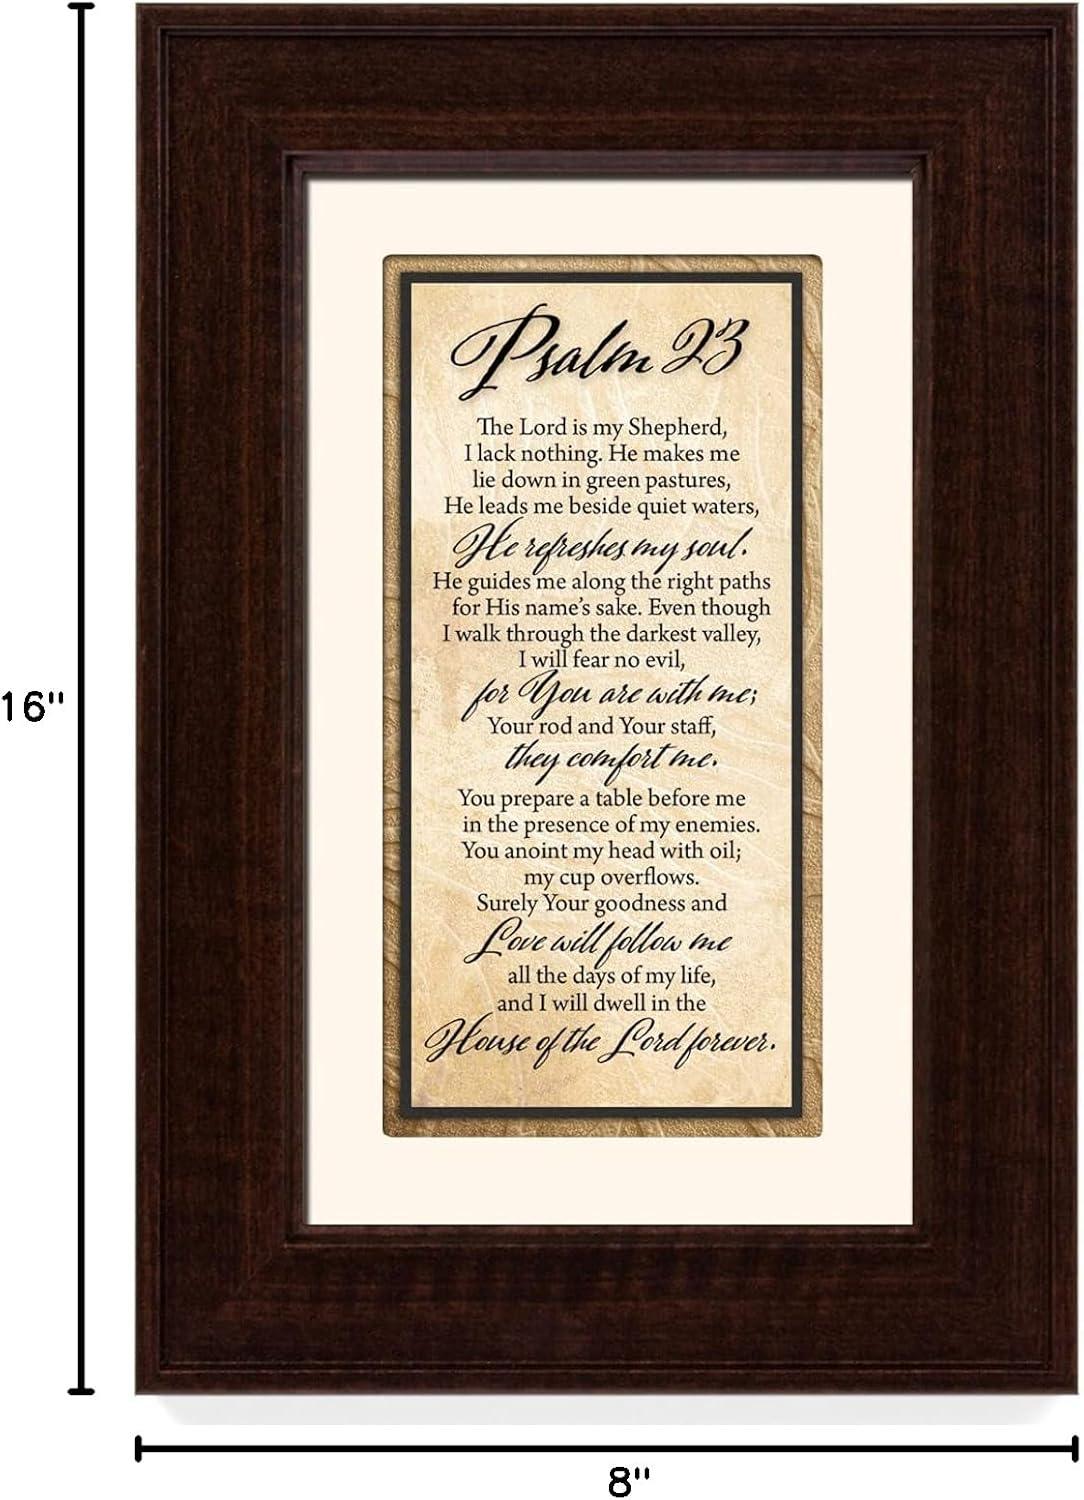 Psalm 23
The Lord is my Shepherd,
I lack nothing. He makes me
lie down in green pastures,
He leads me beside quiet waters,
He refreshes my soul.
He guides me along the right paths
for His name's sake. Even though
I walk through the darkest valley,
I will fear no evil,
for You are with me;
Your rod and Your staff,
they comfort me.
You prepare a table before me
in the presence of my enemies.
You anoint my head with oil;
my cup overflows.
Surely Your goodness and
Love will follow me
all the days of my life,
and I will dwell in the
House of the Lord forever.
16"
8"